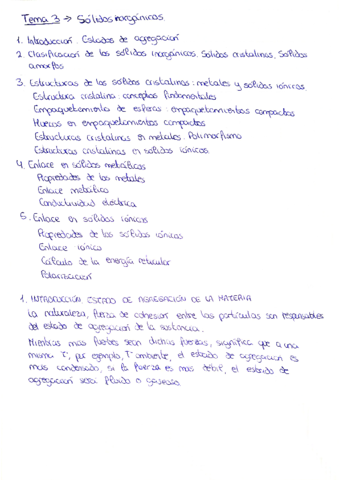 Tema 3 → Sólidos inorgánicos.
1. Introducción. Estados de agregación
2. Clasificación de los sólidos inorgánicos. Sólidos cristalinos, Sólidos
amorfos
3. Estructuras de los sólidos cristalinos: metales y sólidos iónicos.
Estructura cristalina: conceptos fundamentales
Empaquetamiento de esferas: empaquetamientos compactos
Huecos en empaquetamientos compactos
Estructuras cristalinas en metales. Polimorfismo
Estructuras cristalinas en sólidos iónicos.
4. Enlace en sólidos metálicos
Propiedades de los metales
Enlace metálico
Conductividad eléctrica
5. Enlace en sólidos iónicos
Propiedades de los sólidos iónicos
Enlace iónico
Cálculo de la energía reticular
Polarización
1. INTRODUCCIÓN ESTADO DE AGREGACIÓN DE LA MATERIA
La naturaleza, fuerza de cohesión entre las partículas son responsables
del estado de agregación de la sustancia.
Mientras mas fuertes sean dichas fuerzas, significa que a una
misma Tª, por ejemplo, Tª ambiente, el estado de agregación es
mas condensado, si la fuerza es mas débil, el estado de
agregación será fluido o gaseoso.